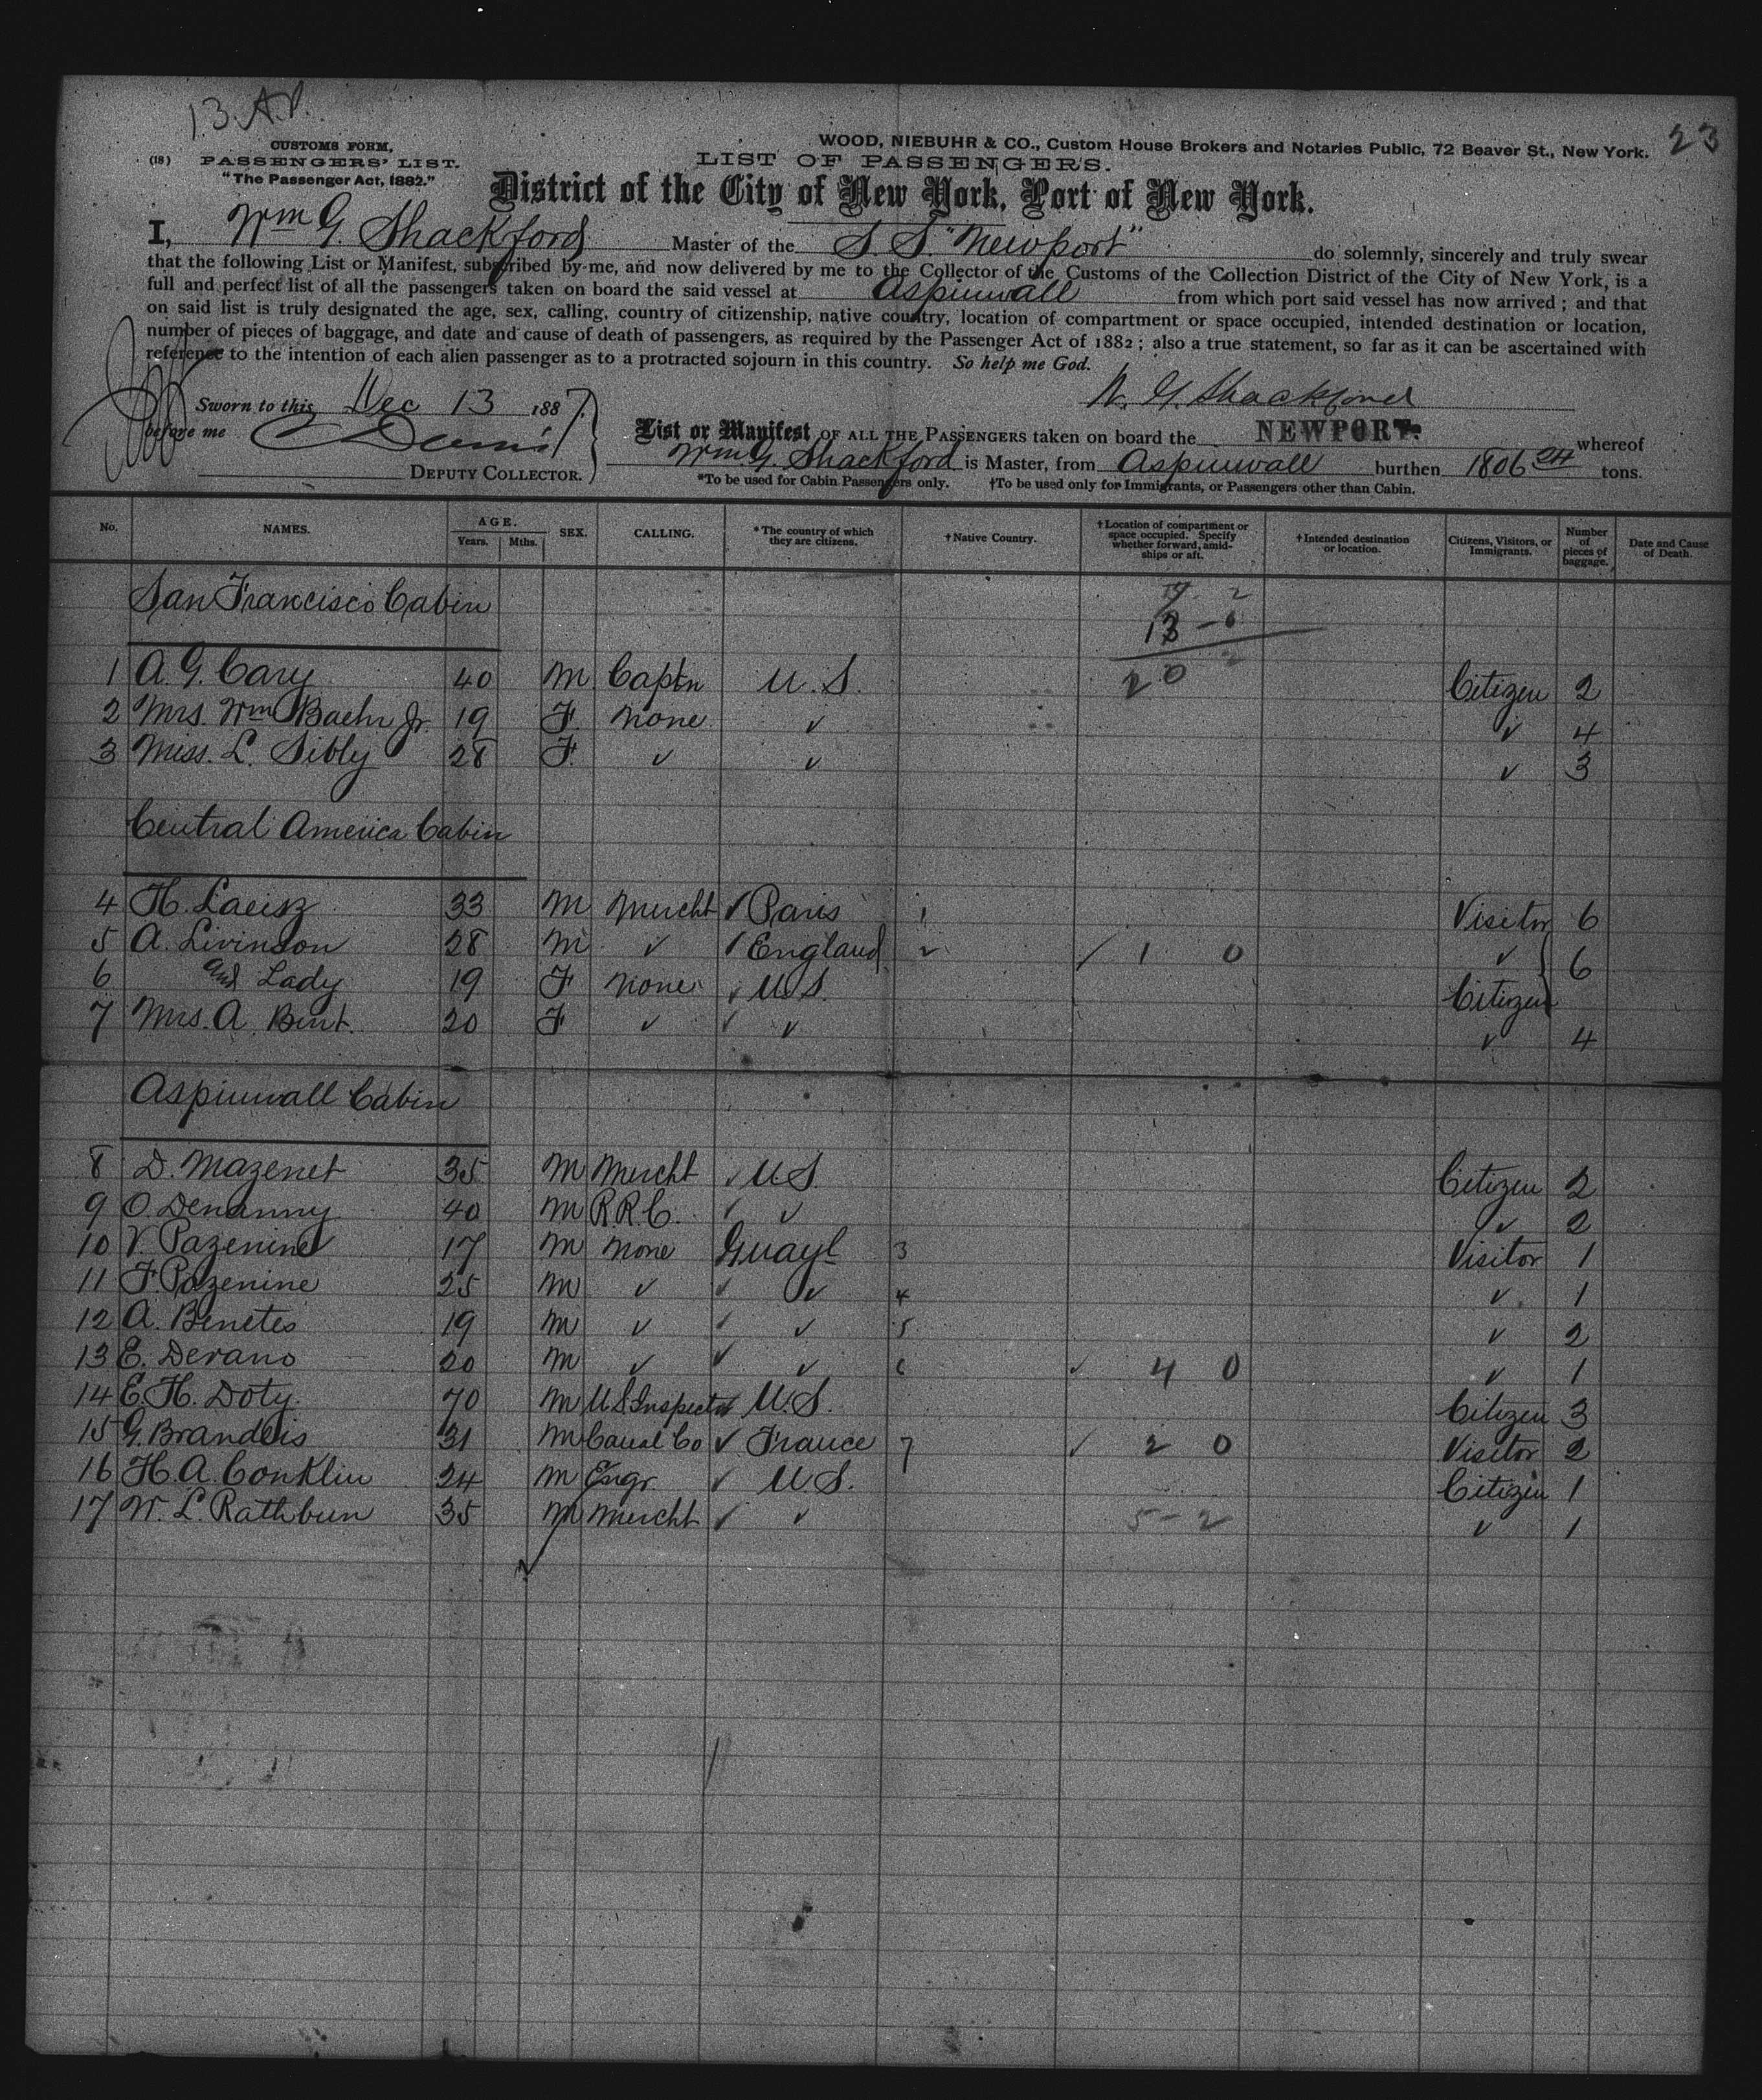 13.A.P.
23
WOOD, NIEBUHR & CO., Custom House Brokers and Notaries Public, 72 Beaver St., New York.
CUSTOMS FORM,
(18) PASSENGERS' LIST.
"The Passenger Act, 1882."
LIST OF PASSENGERS.
District of the City of New York, Port of New York.
I, Wm G. Shackford Master of the S. S. "Newport" do solemnly, sincerely and truly swear
that the following List or Manifest, subscribed by me, and now delivered by me to the Collector of the Customs of the Collection District of the City of New York, is a
full and perfect list of all the passengers taken on board the said vessel at Aspinwall from which port said vessel has now arrived; and that
on said list is truly designated the age, sex, calling, country of citizenship, native country, location of compartment or space occupied, intended destination or location,
number of pieces of baggage, and date and cause of death of passengers, as required by the Passenger Act of 1882; also a true statement, so far as it can be ascertained with
reference to the intention of each alien passenger as to a protracted sojourn in this country. So help me God.
W. G. Shackford
Sworn to this Dec 13 1887.
before me
DEPUTY COLLECTOR.
List or Manifest OF ALL THE PASSENGERS taken on board the NEWPORT. whereof
Wm. G. Shackford is Master, from Aspinwall burthen 1806 24 tons.
*To be used for Cabin Passengers only. †To be used only for Immigrants, or Passengers other than Cabin.
No. NAMES. AGE. Years. Mths. SEX. CALLING. *The country of which they are citizens. †Native Country. †Location of compartment or space occupied. Specify whether forward, amidships or aft. †Intended destination or location. Citizens, Visitors, or Immigrants. Number of pieces of baggage. Date and Cause of Death.
San Francisco Cabin
13 - 0
20
1 A. G. Cary 40 M Captn U.S. Citizen 2
2 Mrs. Wm Baehr Jr. 19 F. None ✓ ✓ 4
3 Miss. L. Sibly 28 F. ✓ ✓ ✓ 3
Central America Cabin
4 H. Laeisz 33 M Mercht ✓ Paris 1 Visitor 6
5 A. Livinson 28 M ✓ ✓ England 2 ✓ 1 0 ✓ 6
6 and Lady 19 F None ✓ U.S. Citizen
7 Mrs. A. Bent. 20 F ✓ ✓ ✓ ✓ 4
Aspinwall Cabin
8 D. Mazenet 35 M Mercht ✓ U.S. Citizen 2
9 O. Denanny 40 M R.R.C. ✓ ✓ ✓ 2
10 V. Pazenine 17 M None Guayl 3 Visitor 1
11 F. Pazenine 25 M ✓ ✓ ✓ 4 ✓ 1
12 A. Benetes 19 M ✓ ✓ ✓ 5 ✓ 2
13 E. Derano 20 M ✓ ✓ ✓ 6 ✓ 4 0 ✓ 1
14 E. H. Doty. 70 M U.S. Inspector U.S. Citizen 3
15 G. Brandeis 31 M Canal Co ✓ France 7 ✓ 2 0 Visitor 2
16 H. A. Conklin 24 M Engr. ✓ U.S. Citizen 1
17 W. L. Rathbun 35 M Mercht ✓ ✓ 5-2 ✓ 1